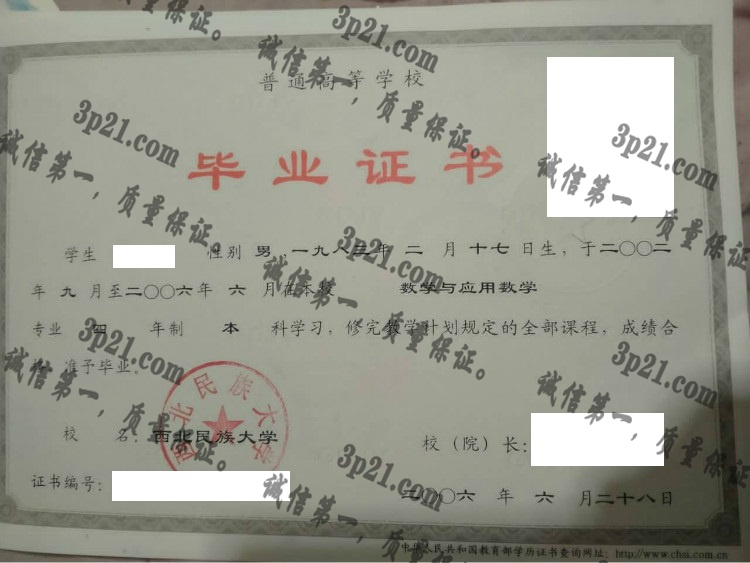 普通高等学校
毕业证书
学生 性别 男，一九八三年 二 月 十七 日生，于二〇〇二
年 九 月至二〇〇六年 六 月在本校 数学与应用数学
专业 四 年制 本 科学习，修完教学计划规定的全部课程，成绩合
准予毕业。
西北民族大学
校 名：西北民族大学
校（院）长：
证书编号：
二〇〇六 年 六 月二十八日
中华人民共和国教育部学历证书查询网址：http://www.chsi.com.cn
质量保证。
3p21.com
诚信第一，质量保证。
3p21.com
诚信第一，质量保证。
3p21.com
诚信第一，质量保证。
3p21.com
诚信第一，质量保证。
3p21.com
诚信第一，质量保证。
3p21.com
诚信第一，质量保证。
3p21.com
诚信第一，质量保证。
3p21.com
诚信第一，